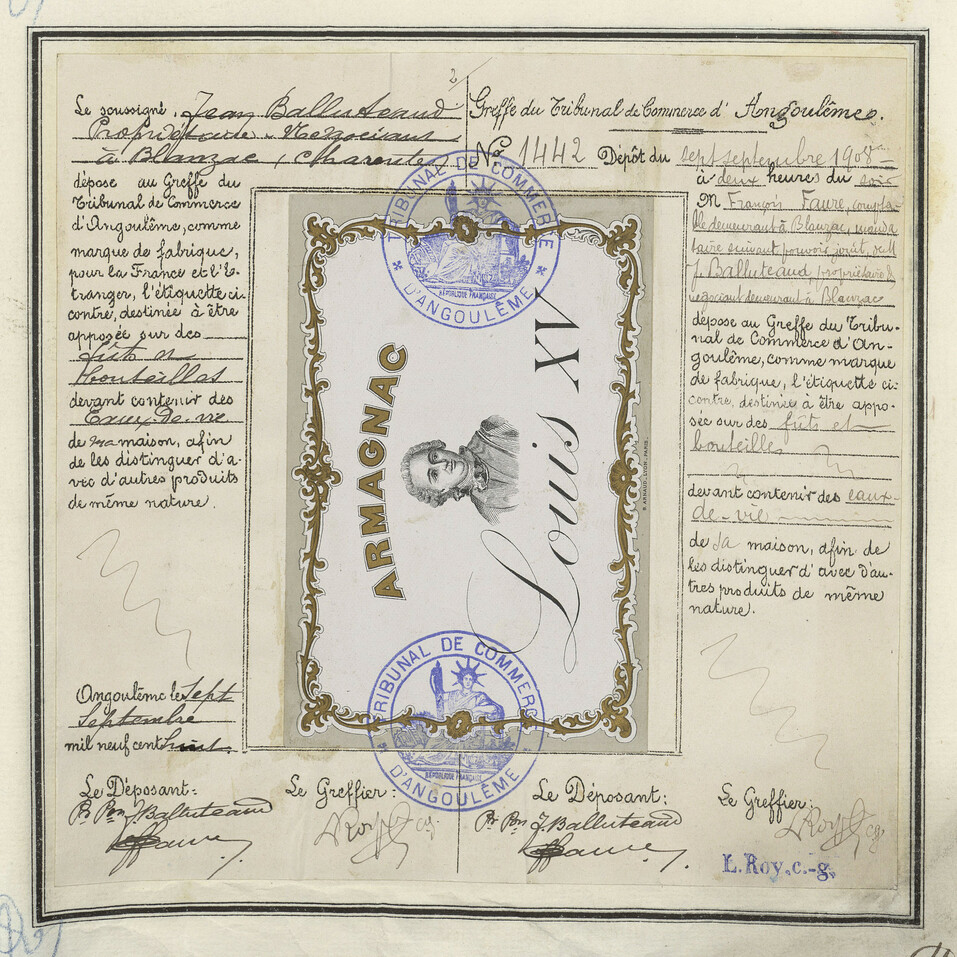 2
Le soussigné, Jean Balluteaud
Propriétaire - Négociant
à Blanzac (Charente)
dépose au Greffe du
Tribunal de Commerce
d'Angoulême, comme
marque de fabrique,
pour la France et l'É-
tranger, l'étiquette ci-
contre, destinée à être
apposée sur des
fûts et
bouteilles
devant contenir des
Eaux-De-vie
de ma maison, afin
de les distinguer d'a-
vec d'autres produits
de même nature.
Angoulême le Sept
Septembre
mil neuf cent huit.
Le Déposant:
Pr Pon J. Balluteaud
F Faure
Le Greffier:
L Roy cg
TRIBUNAL DE COMMERCE
RÉPUBLIQUE FRANÇAISE
D'ANGOULÊME
ARMAGNAC
Louis XV
G. ARNAUD, LYON-PARIS.
TRIBUNAL DE COMMERCE
RÉPUBLIQUE FRANÇAISE
D'ANGOULÊME
Greffe du Tribunal de Commerce d'Angoulême.
No 1442 Dépôt du sept septembre 1908
à deux heures du soir
M François Faure, compta-
ble demeurant à Blanzac, manda-
taire suivant pouvoir joint, de M
J. Balluteaud propriétaire &
négociant demeurant à Blanzac
dépose au Greffe du Tribu-
nal de Commerce d'An-
goulême, comme marque
de fabrique, l'étiquette ci-
contre, destinée à être appo-
sée sur des fûts et
bouteilles
devant contenir des eaux-
de-vie
de sa maison, afin de
les distinguer d'avec d'au-
tres produits de même
nature.
Le Déposant:
Pr Pon J. Balluteaud
F Faure
Le Greffier:
L Roy cg
L. Roy. c.-g.